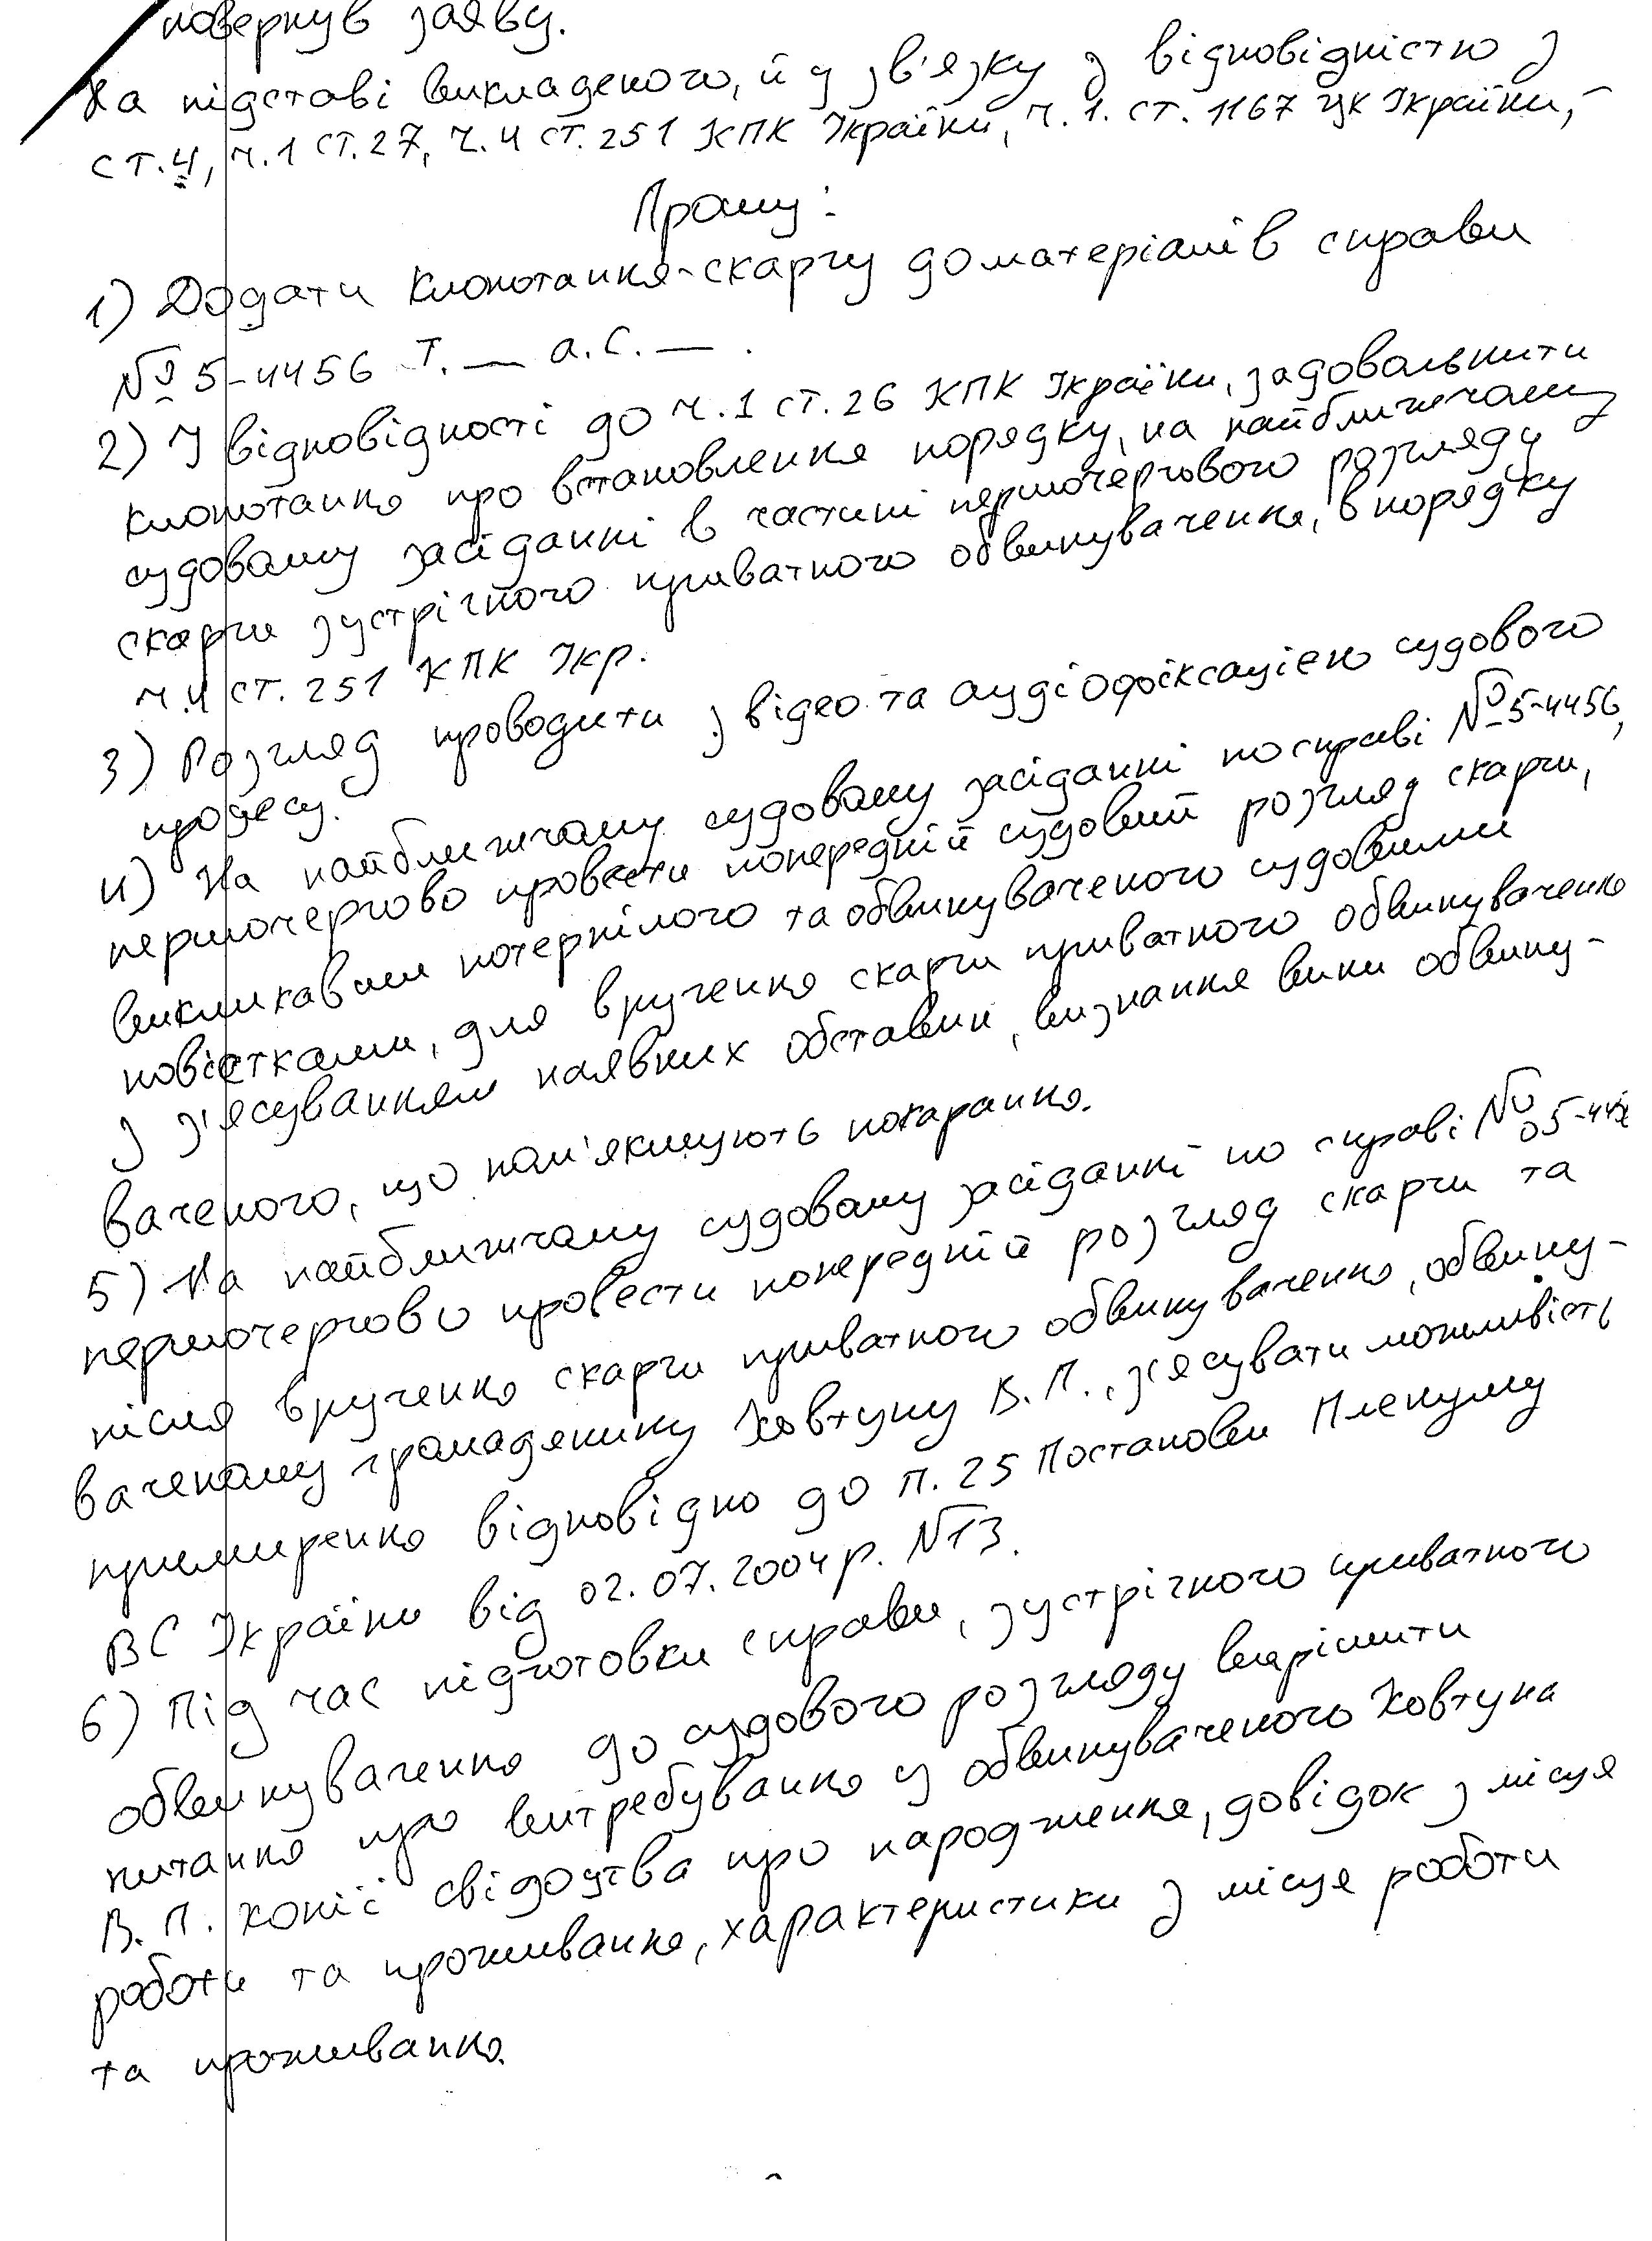 повернув заяву.
На підставі викладеного, й у зв'язку з відповідністю з
ст.4, ч.1 ст.27, ч.4 ст.251 КПК України, ч.1. ст. 1167 ЦК України,-
Прошу:
1) Додати клопотання-скаргу до матеріалів справи
№ 5-4456 т. — а.с. — .
2) У відповідності до ч.1 ст.26 КПК України, задовольнити
клопотання про встановлення порядку, на найближчому
судовому засіданні в частині першочергового розгляду
скарги зустрічного приватного обвинувачення, в порядку
ч.4 ст. 251 КПК Укр.
3) Розгляд проводити з відео та аудіофіксацією судового
процесу.
4) На найближчому судовому засіданні по справі № 5-4456,
першочергово провести попередній судовий розгляд скарги,
викликавши потерпілого та обвинуваченого судовими
повістками, для вручення скарги приватного обвинувачення
з з'ясуванням наявних обставин, визнання вини обвину-
ваченого, що пом'якшують покарання.
5) На найближчому судовому засіданні по справі № 5-4456
першочергово провести попередній розгляд скарги та
після вручення скарги приватного обвинувачення, обвину-
ваченому громадянину Ковтуну В.П., з'ясувати можливість
примирення відповідно до п. 25 Постанови Пленуму
ВС України від 02.07.2004р. №13.
6) Під час підготовки справи, зустрічного приватного
обвинувачення до судового розгляду вирішити
питання про витребування у обвинуваченого Ковтуна
В.П. копії свідоцтва про народження, довідок з місця
роботи та проживання, характеристики з місця роботи
та проживання.